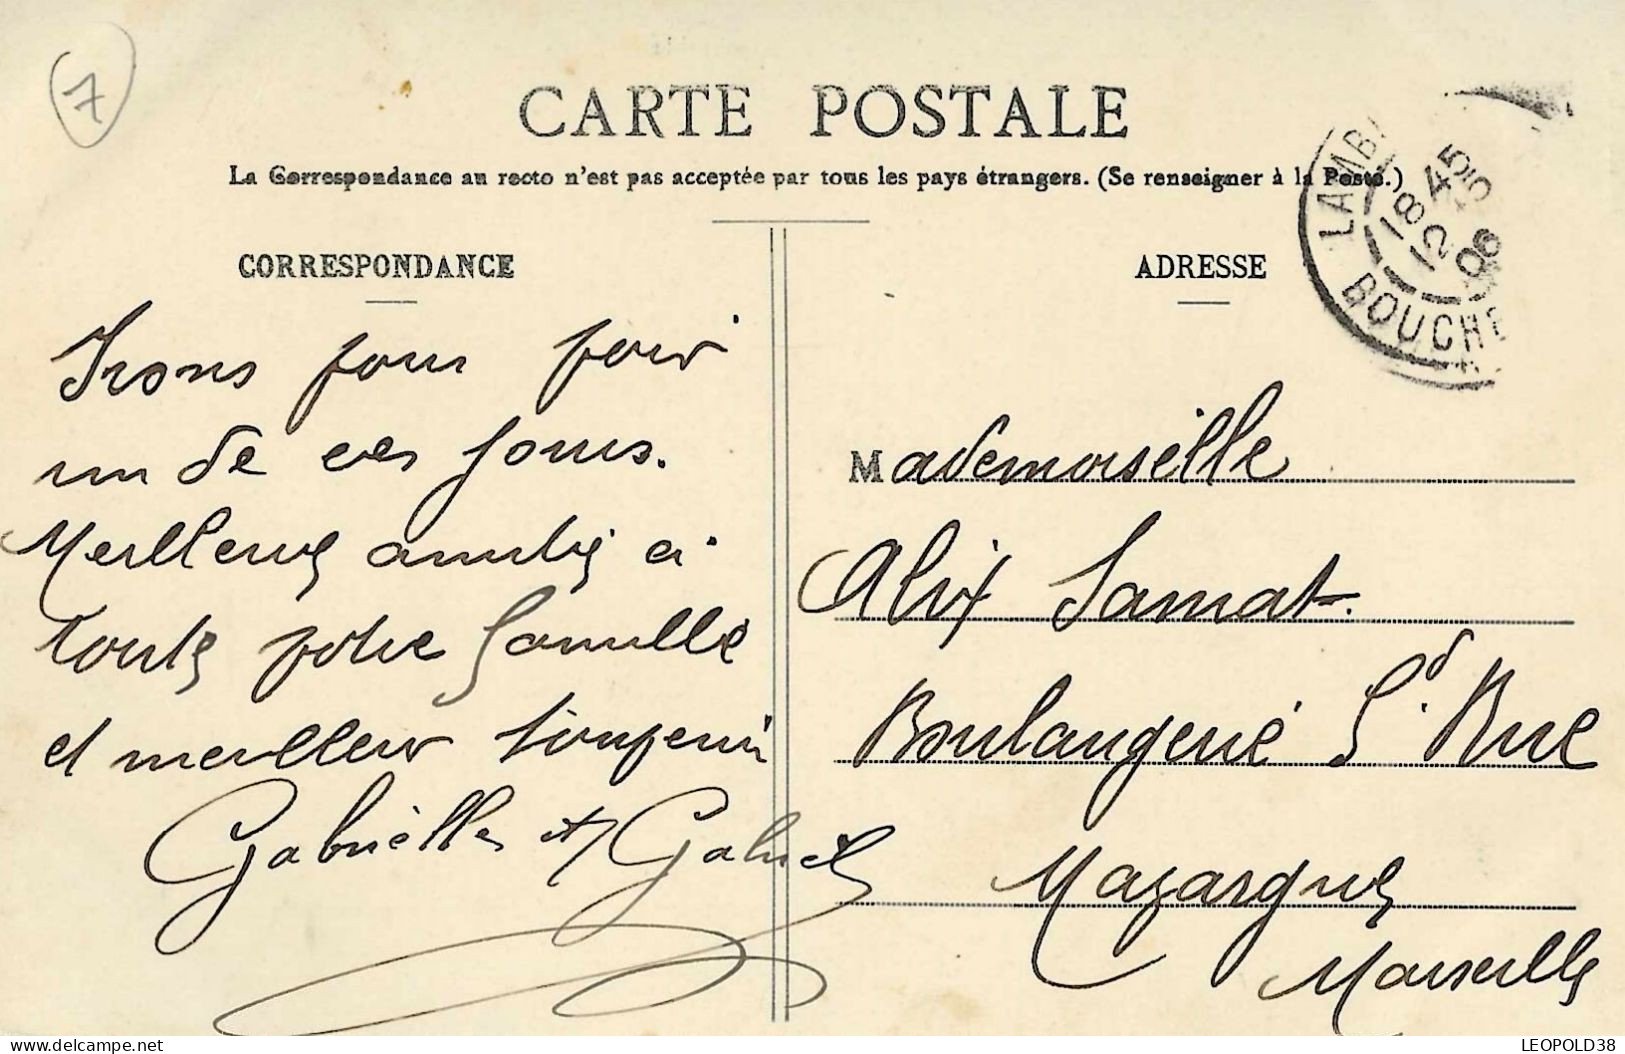 7
CARTE POSTALE
La Correspondance au recto n'est pas acceptée par tous les pays étrangers. (Se renseigner à la Poste.)
CORRESPONDANCE
Irons vous voir
un de ces jours.
Meilleures amitiés à
toute votre famille
et meilleur souvenir
Gabrielle et Gabriel
ADRESSE
LAMB
18 45
12
06
BOUCHE
Mademoiselle
Alix Samat.
Boulangerie Gd. Rue
Mazargues
Marseille
delcampe.net
LEOPOLD38